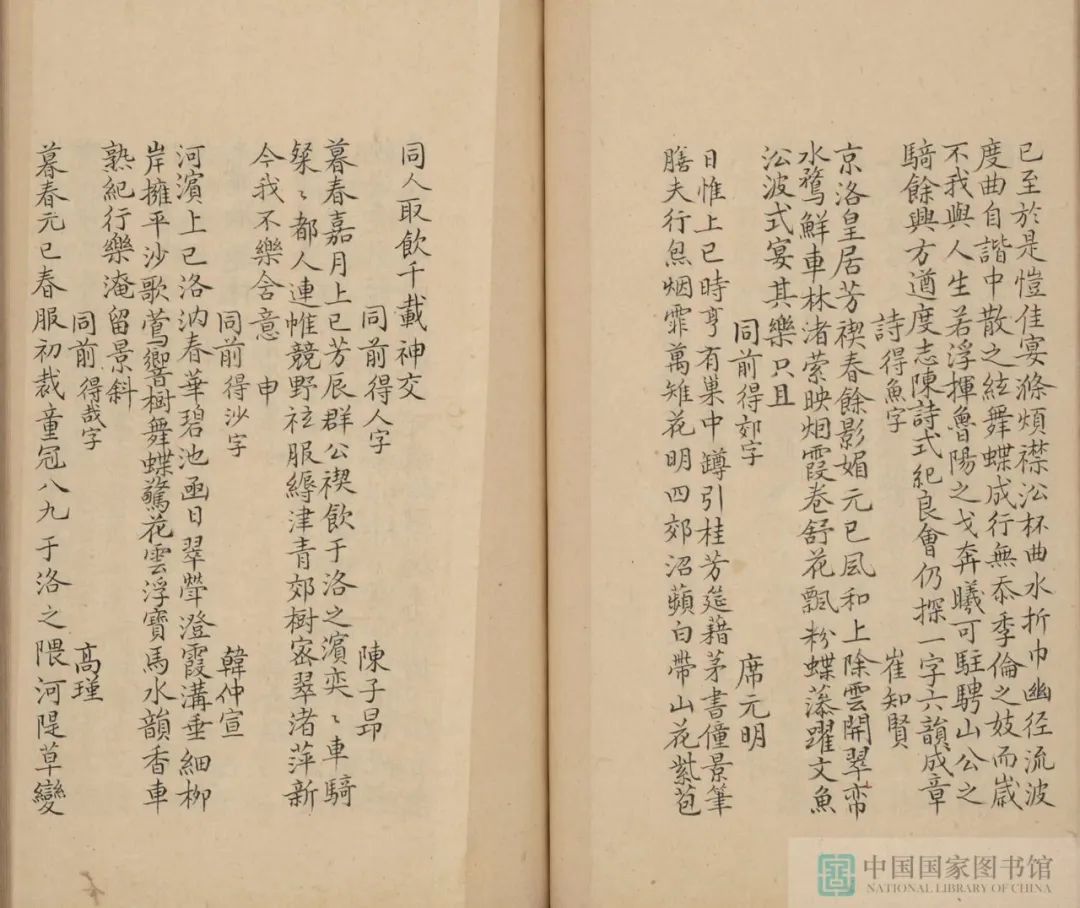 已至於是愷佳宴滌煩襟泛杯曲水折巾幽径流波
度曲自諧中散之絃舞蝶成行無忝季倫之妓而嵗
不我與人生若浮揮魯陽之戈奔曦可駐騁山公之
騎餘興方遒度志陳詩式紀良會仍探一字六韻成章
詩得魚字 崔知賢
京洛皇居芳禊春餘影媚元巳風和上除雲開翠帟
水鶩鮮車林渚縈映烟霞卷舒花飄粉蝶藻躍文魚
泛波式宴其樂只且
同前得郊字 席元明
日惟上巳時亨有巢中罇引桂芳筵藉茅書僮景筆
膳夫行炰烟霏萬雉花明四郊沼蘋白帶山花紫苞
同人取飲千載神交
同前得人字 陳子昂
暮春嘉月上巳芳辰群公禊飲于洛之濱奕〻車騎
粲〻都人連帷競野袨服縟津青郊樹密翠渚萍新
今我不樂含意 申
同前得沙字 韓仲宣
河濱上巳洛汭春華碧池涵日翠斝澄霞溝垂細柳
岸擁平沙歌鶯響樹舞蝶驚花雲浮寶馬水韻香車
熟紀行樂淹留景斜
同前得哉字 高瑾
暮春元巳春服初裁童冠八九于洛之隈河隄草變
中国国家图书馆
NATIONAL LIBRARY OF CHINA